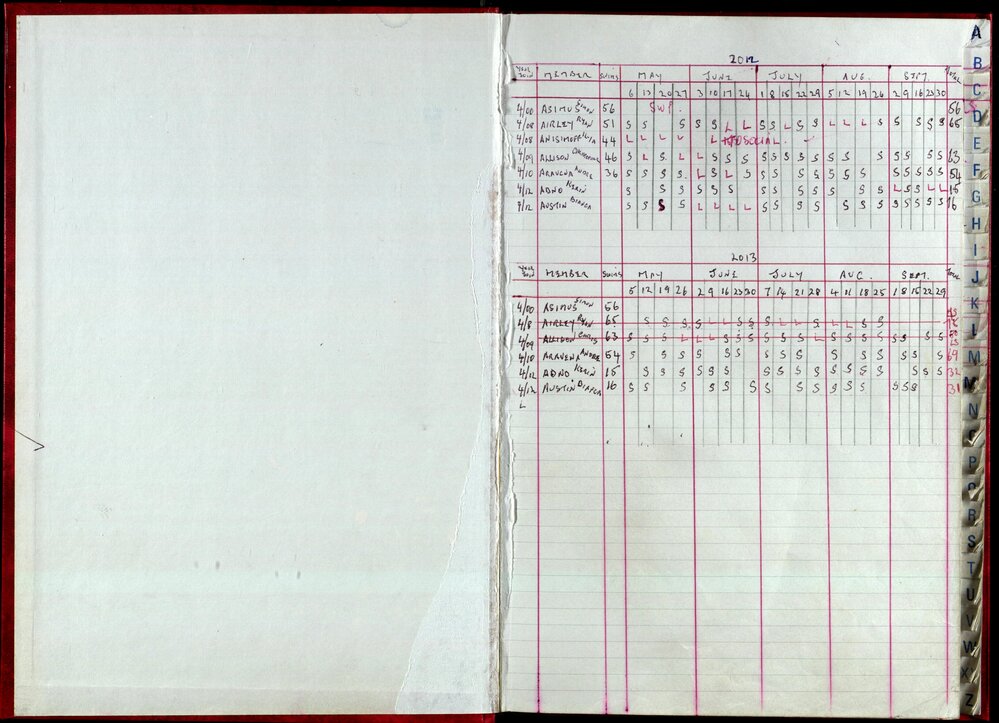 2012
YEAR JOIN MEMBER SWIMS MAY JUNE JULY AUG. SEPT. TOTAL
6 13 20 27 3 10 17 24 1 8 15 22 29 5 12 19 26 2 9 16 23 30
4/00 ASIMUS SIMON 56 SWP. 56
4/08 AIRLEY RYAN 51 S S S S S L L S S L S S L L L S S S S S 65
4/08 ANISIMOFF ILIA 44 L L L L L SOCIAL.
4/09 ALLISON 46 S L S L L S S S S S S S S S S S S S S 63
4/10 ARAVENA ANDRE 36 S S S S L S L S S S S S S S S S S S S S 54
4/12 ADNO KERIN S S S S S S S S S S S S S L S S L L 15
4/12 AUSTIN BIANCA S S S S L L L L S S S S S S S S S S S 16
2013
YEAR JOIN MEMBER SWIMS MAY JUNE JULY AUG. SEPT. TOTAL
5 12 19 26 2 9 16 23 30 7 14 21 28 4 11 18 25 1 8 15 22 29
4/00 ASIMUS SIMON 56
4/8 AIRLEY RYAN 65 S S S S L L S S S L L S L L S S
4/09 ALLISON CHRIS 63 S S S L L L S S S S S S L S S S S S S S S
4/10 ARAVENA ANDRE 54 S S S S S S S S S S S S S S S 69
4/12 ADNO KERIN 15 S S S S S S S S S S S S S S S S S 32
4/12 AUSTIN BIANCA 16 S S S S S S S S S S S S S S S 31
L
A
B
C
D
E
F
G
H
I
J
K
L
M
N
P
R
S
T
U
V
W
Z